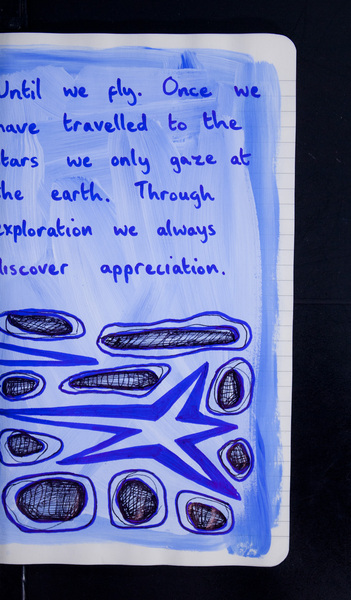 Until we fly. Once we
have travelled to the
stars we only gaze at
the earth. Through
exploration we always
discover appreciation.